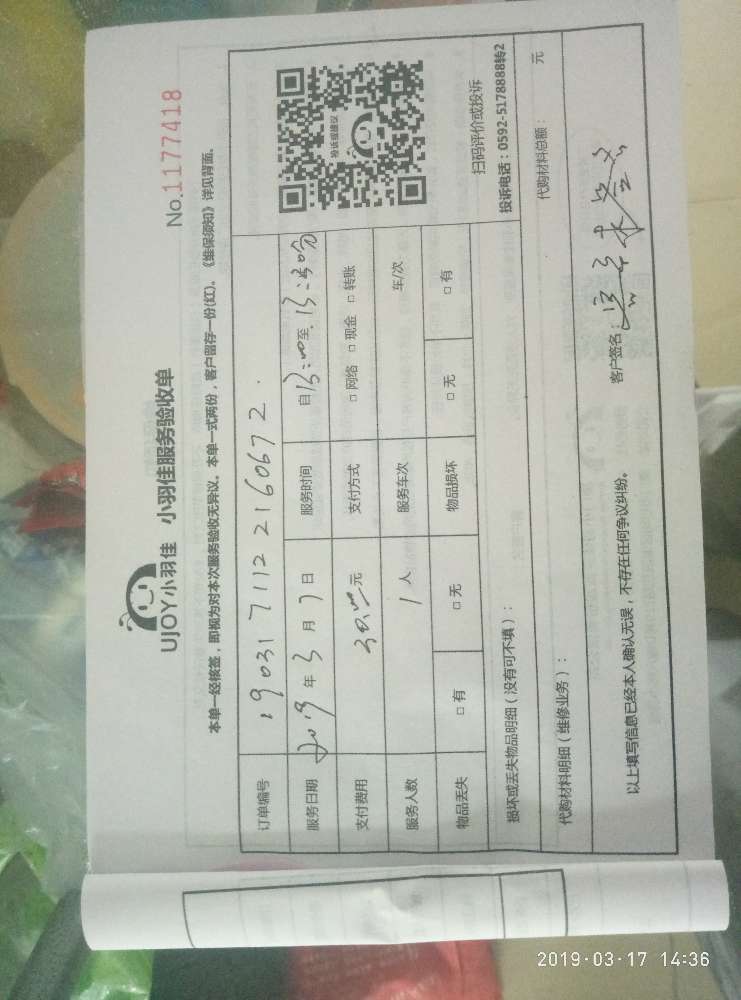 UJOY小羽佳 小羽佳服务验收单
No.1177418
本单一经核签，即视为对本次服务验收无异议。本单一式两份，客户留存一份(红)。《维保须知》详见背面。
订单编号 190317112 2160672
服务日期 2019年3月 日 服务时间 自13:00至
支付费用 元 支付方式 □网络 □现金 □转账
服务人数 1人 服务车次 车/次
物品丢失 □有 □无 物品损坏 □无 □有
投诉或建议
扫码评价或投诉
投诉电话：0592-5178888转2
损坏或丢失物品明细（没有可不填）：
代购材料明细（维修业务）： 代购材料总额： 元
以上填写信息已经本人确认无误，不存在任何争议纠纷。 客户签名：
2019·03·17 14:36